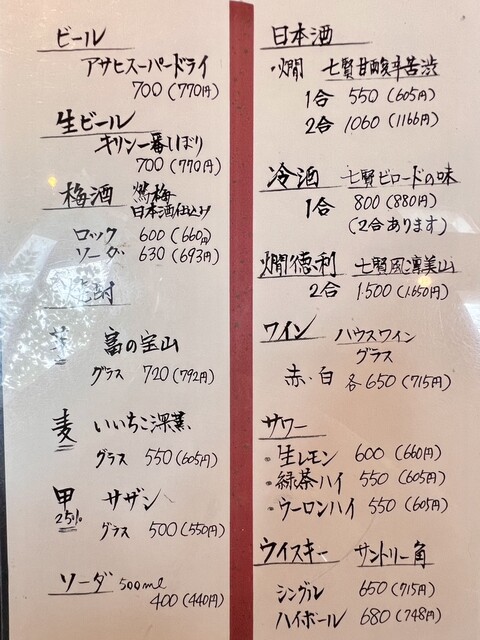 ビール
アサヒスーパードライ
700(770円)
生ビール
キリン一番しぼり
700(770円)
梅酒 鶯梅
日本酒仕込み
ロック 600(660円)
ソーダ 630(693円)
焼酎
芋 富の宝山
グラス 720(792円)
麦 いいちこ深薫
グラス 550(605円)
甲 サザン
25%
グラス 500(550円)
ソーダ 500ml
400(440円)
日本酒
・燗 七賢甘酸辛苦渋
1合 550(605円)
2合 1060(1166円)
冷酒 七賢ビロードの味
1合 800(880円)
(2合あります)
燗徳利 七賢風凛美山
2合 1.500(1.650円)
ワイン ハウスワイン
グラス
赤・白 各650(715円)
サワー
・生レモン 600(660円)
・緑茶ハイ 550(605円)
・ウーロンハイ 550(605円)
ウイスキー サントリー角
シングル 650(715円)
ハイボール 680(748円)